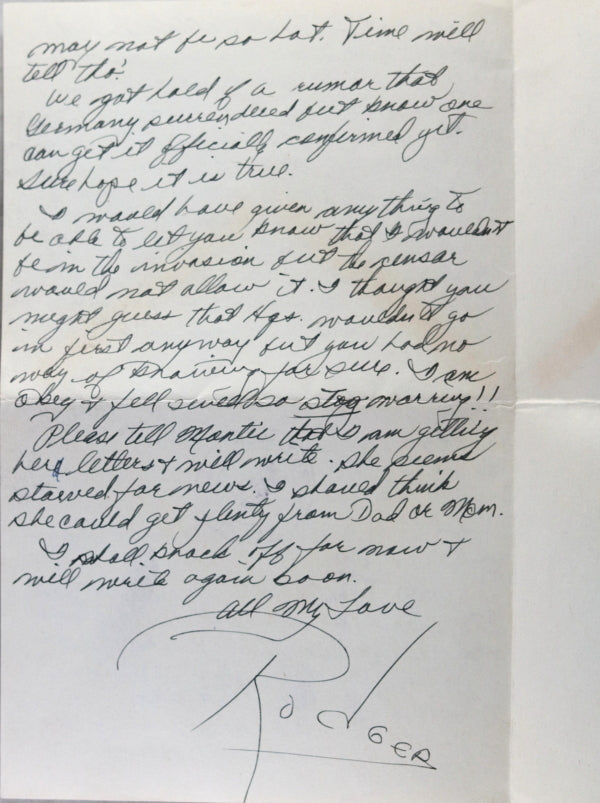 may not be so hot. Time will
tell tho'.
We got hold of a rumor that
Germany surrendered but know one
can get it officially confirmed yet.
Sure hope it is true.
I would have given anything to
be able to let you know that I wouldn't
be in the invasion but the censar
would not allow it. I thought you
might guess that Hqs. wouldn't go
in first anyway but you had no
way of knowing for sure. I am
okey & fell swell so stop worring!!
Please tell that I am getting
her letters & will write. She seems
starved for news. I should think
she could get plenty from Dad or Mom.
I shall knock off for now &
will write again soon.
All My Love
Rodger